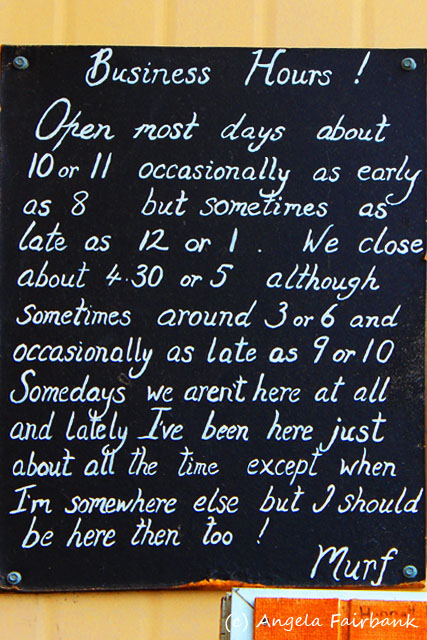 Business Hours !
Open most days about
10 or 11 occasionally as early
as 8 but sometimes as
late as 12 or 1 . We close
about 4.30 or 5 although
sometimes around 3 or 6 and
occasionally as late as 9 or 10
Somedays we aren't here at all
and lately I've been here just
about all the time except when
I'm somewhere else but I should
be here then too !
Murf
(c) Angela Fairbank